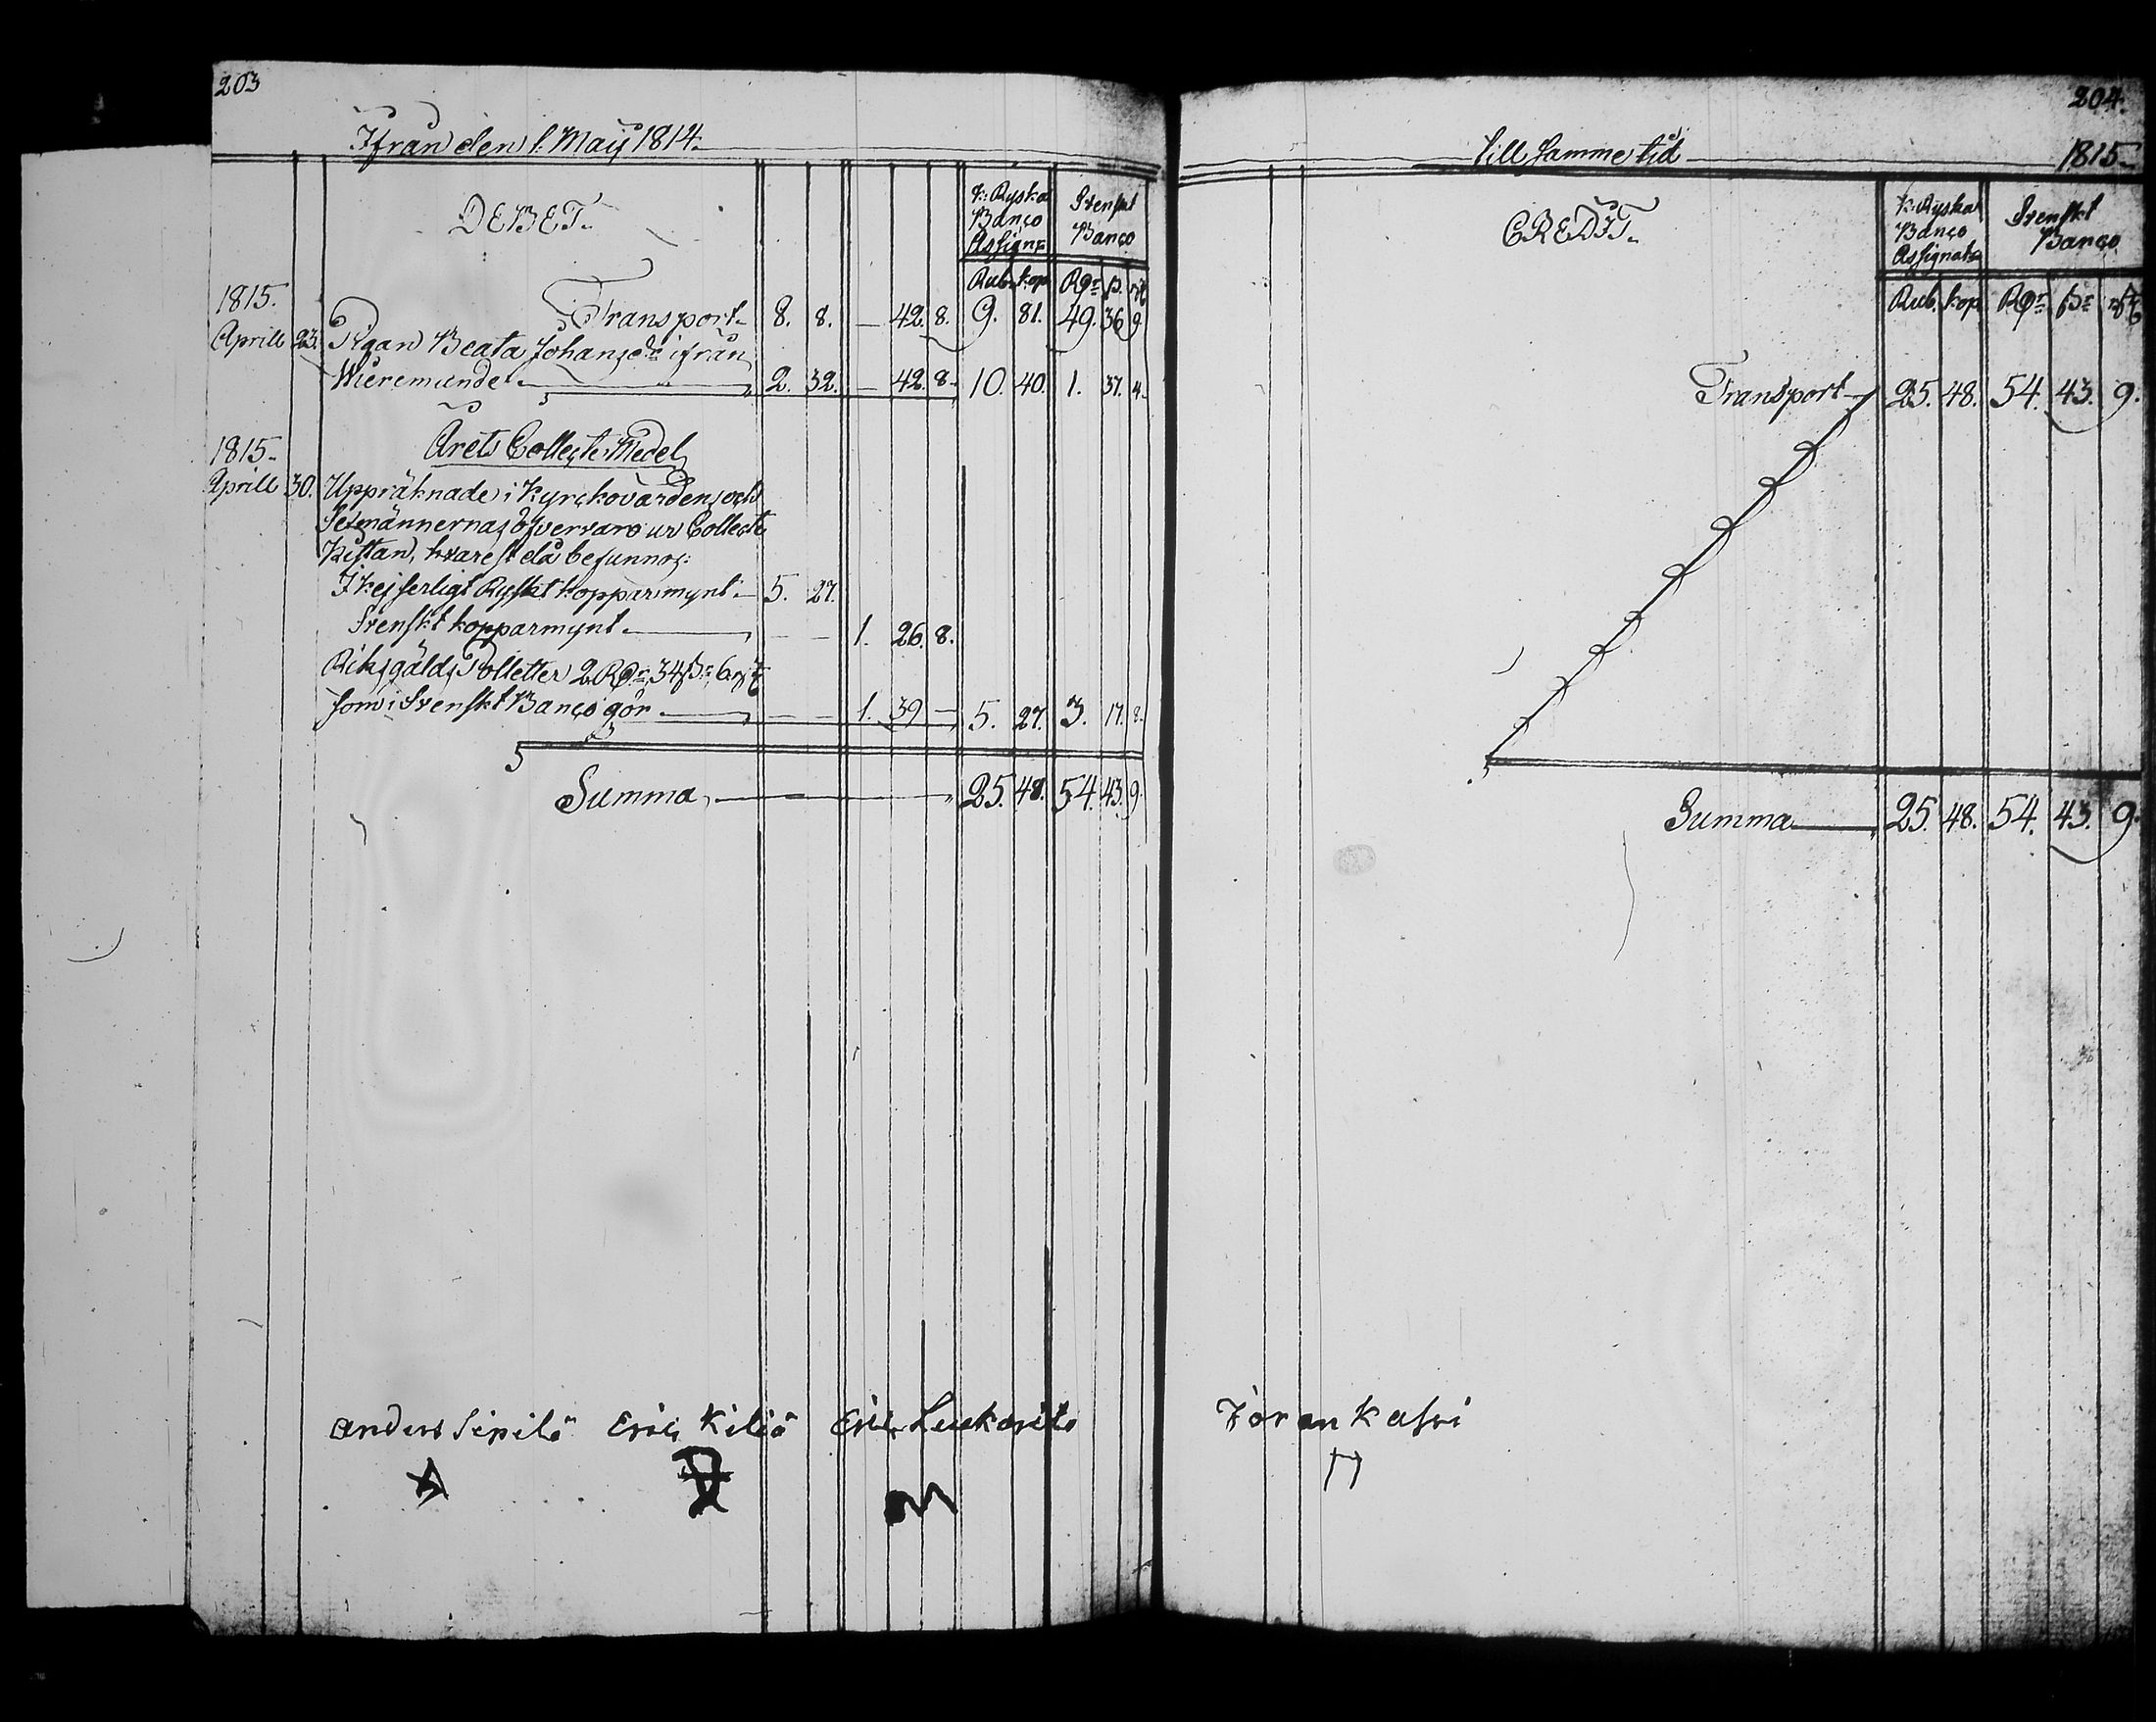 203
Ifrån den 1. Maij 1814.
DEBET.
K: Ryska Banco Assign:
Svenskt Banco
Rub. kop. Rdr ß. rst
1815.
Transport 8. 8. — 42. 8. 9. 81. 49. 36. 9.
Aprill 23. Pigan Beata Johansdr ifrån
Wieremunde 2. 32. — 42. 8. 10. 40. 1. 37. 4.
1815.
Årets Collecte Medel
Aprill 30. Uppräknade i Kyrckovärdens och
Sexmännernas öfvervaro ur Collecte
Kistan, hvarest då befunnos:
I Kejserligt Ryskt kopparmynt 5. 27.
Svenskt kopparmynt 1. 26. 8.
Riksgälds Polletter 2 Rdr 34 ß 6 rst
som i Svenskt Banco gör 1. 39 — 5. 27. 3. 17. 8.
Summa 25. 48. 54. 43. 9.
Anders Sipilä Eric Kiliä Eric
204.
Till samme tid 1815
CREDIT.
K: Ryska Banco Assignat:
Svenskt Banco
Rub. kop. Rdr ßr rst
Transport 25. 48. 54. 43. 9.
Summa 25. 48. 54. 43. 9.